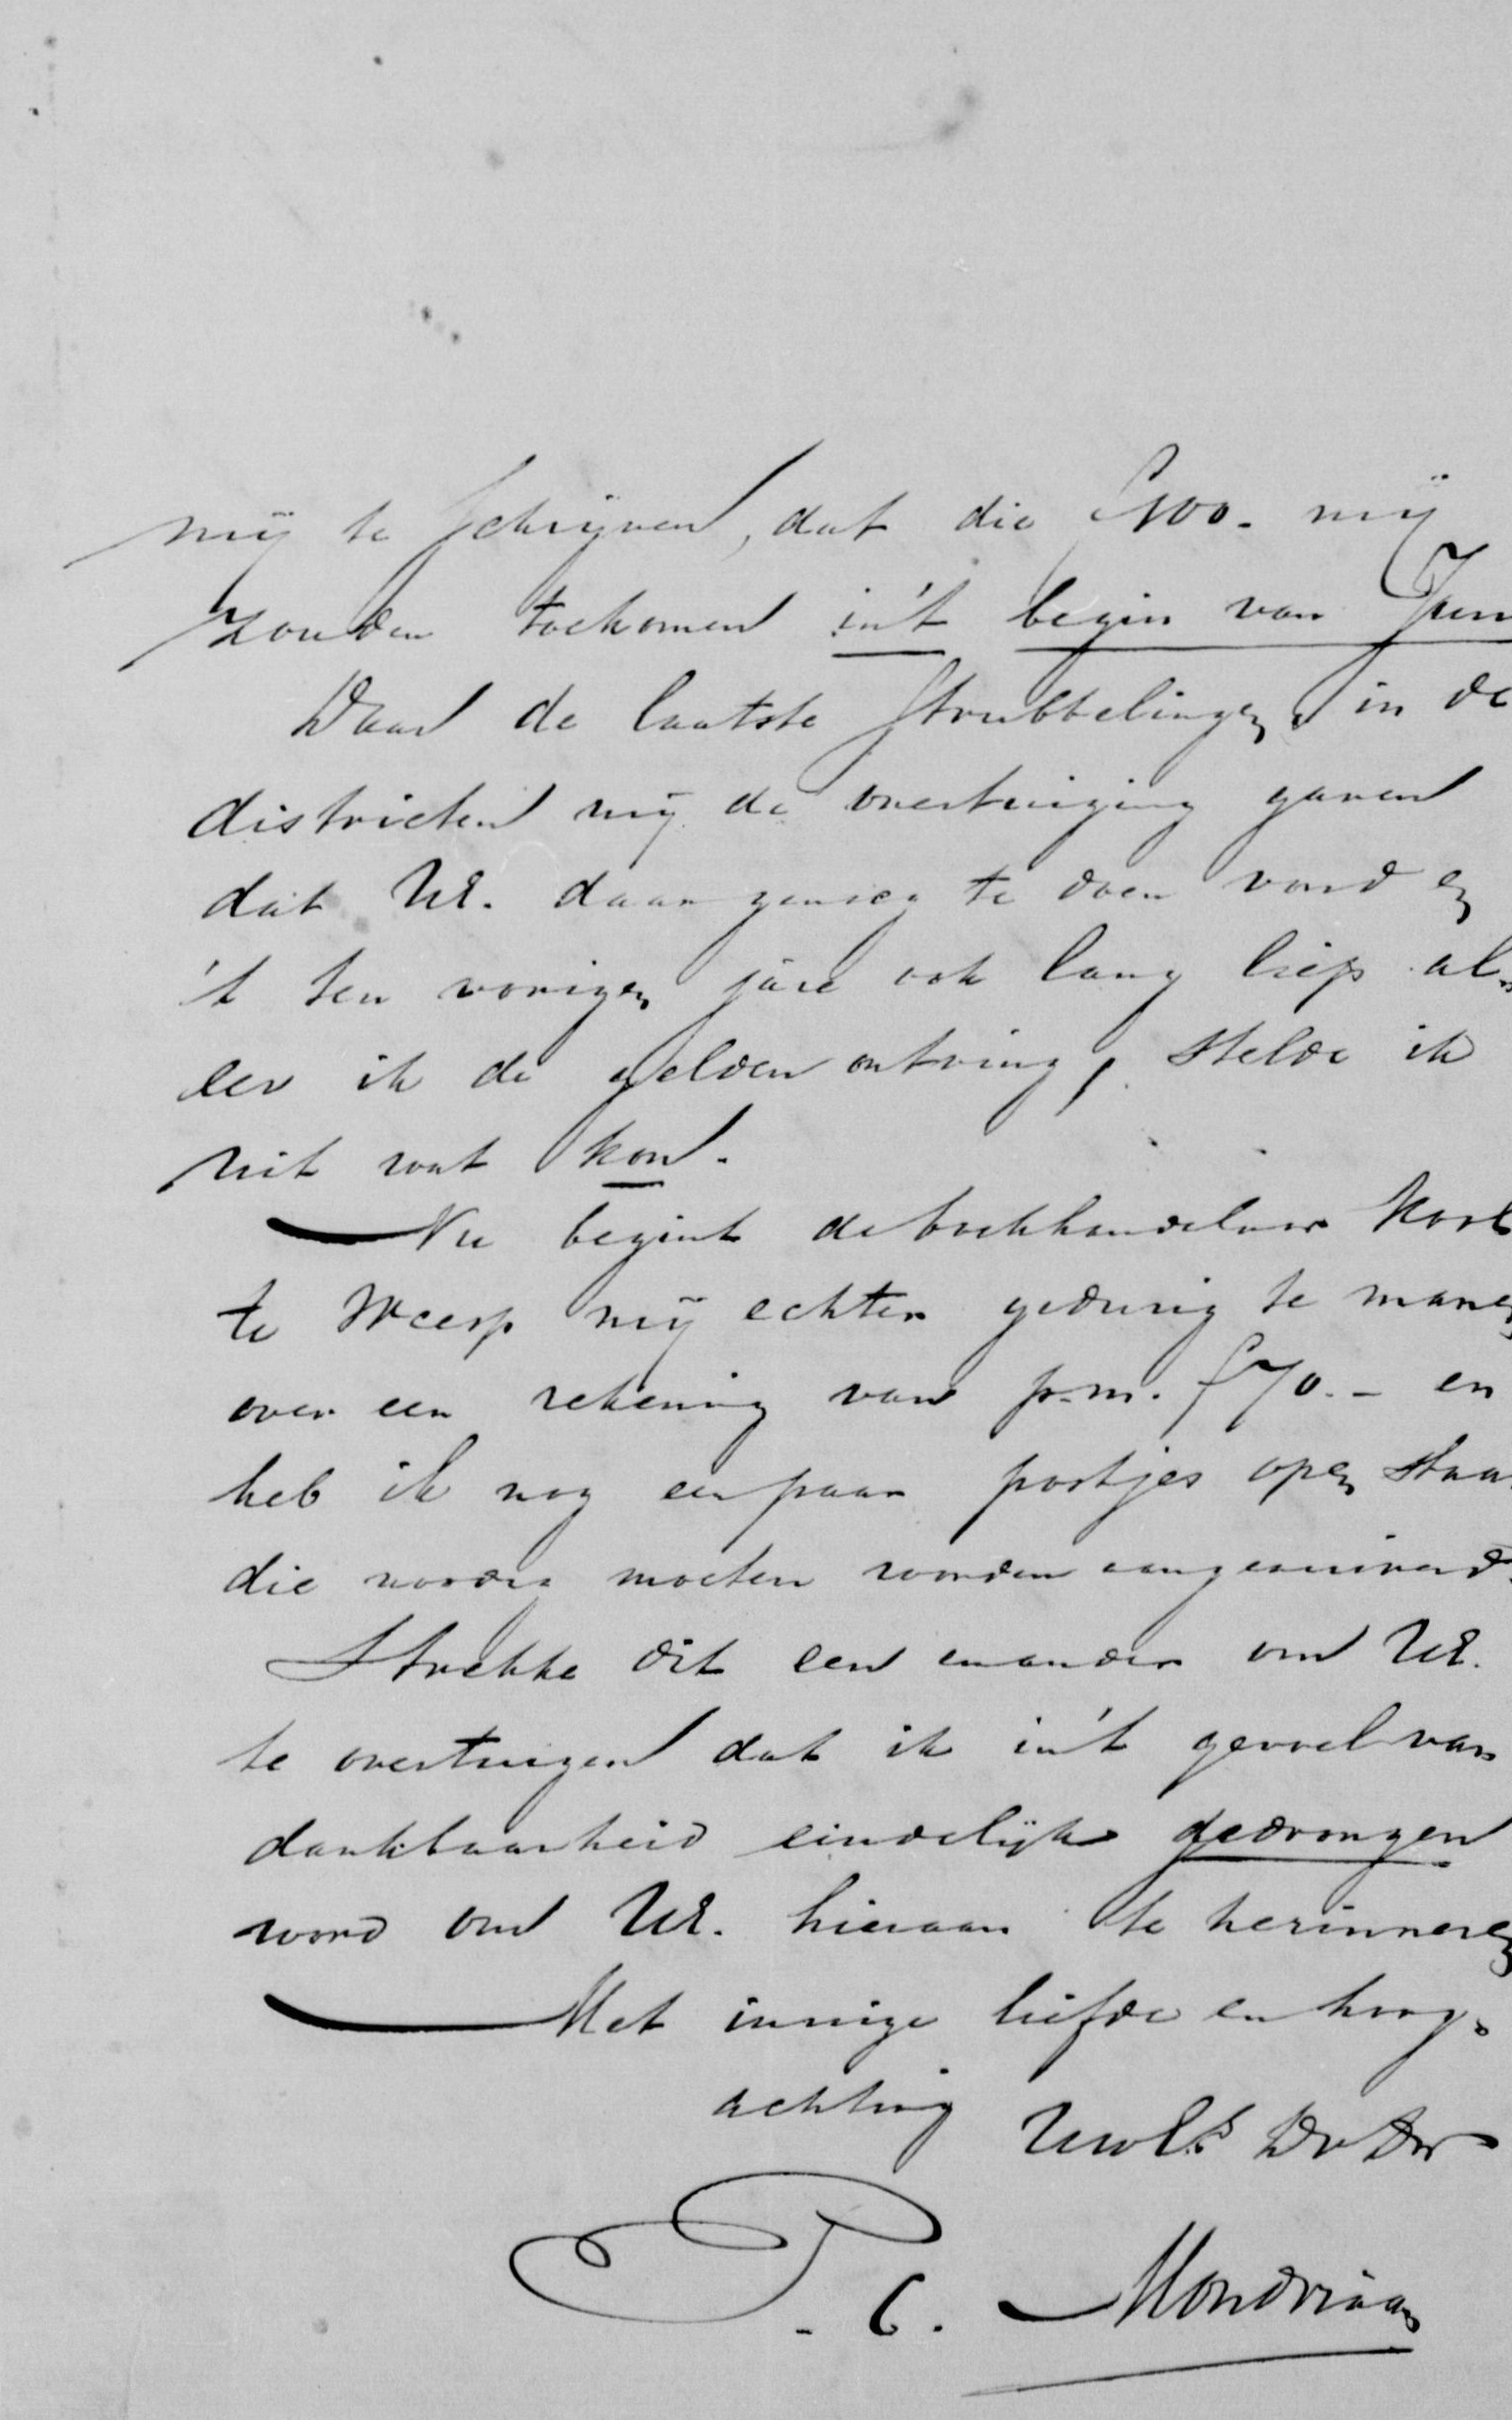 mij te schrijven, dat die f100.- mij
zouden toekomen in't begin van Jun
Daar de laatste strubbelingen in de
districten mij de overtuiging gaven
dat UE. daar genoeg te doen vond en
't ten vorigen jare ook lang liep al
eer ik de gelden ontving, stelde ik
uit wat kon.
Nu begint de boekhandelaar
te Weesp mij echter gedurig te manen
over een rekening van p.m. f70.- en
heb ik nog een paar postjes open staa
die noodig moeten worden aangezuiverd.
Strekke dit een en ander om UE.
te overtuigen dat ik in't gevoel van
dankbaarheid eindelijk gedrongen
word om UE. hieraan te herinneren
Met innige liefde en hoog-
achting UwEd Dv Dr
P. C. Mondriaan